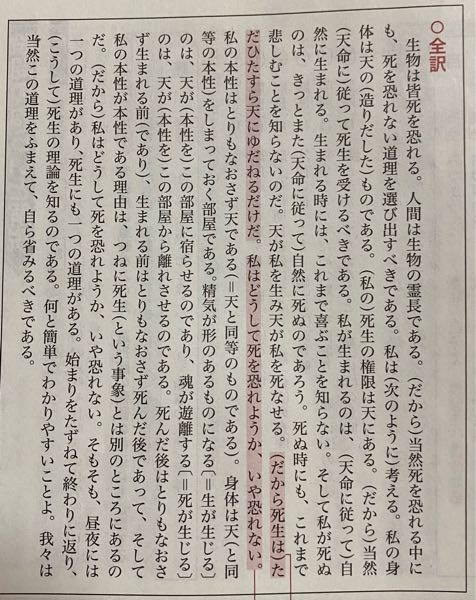 ○全訳
生物は皆死を恐れる。人間は生物の霊長である。（だから）当然死を恐れる中に
も、死を恐れない道理を選び出すべきである。私は（次のように）考える。私の身
体は天の（造りだした）ものである。（私の）死生の権限は天にある。（だから）当然
（天命に）従って死生を受けるべきである。私が生まれるのは、（天命に従って）自
然に生まれる。生まれる時には、これまで喜ぶことを知らない。そして私が死ぬ
のは、きっとまた（天命に従って）自然に死ぬのであろう。死ぬ時にも、これまで
悲しむことを知らないのだ。天が私を生み天が私を死なせる。（だから死生は）た
だひたすら天にゆだねるだけだ。私はどうして死を恐れようか、いや恐れない。
私の本性はとりもなおさず天である（＝天と同等のものである）。身体は天（と同
等の本性）をしまっておく部屋である。精気が形のあるものになる〔＝生が生じる〕
のは、天が（本性を）この部屋に宿らせるのであり、魂が遊離する〔＝死が生じる〕
のは、天が（本性を）この部屋から離れさせるのである。死んだ後はとりもなおさ
ず生まれる前（であり）、生まれる前はとりもなおさず死んだ後であって、そして
私の本性が本性である理由は、つねに死生（という事象）とは別のところにあるの
だ。（だから）私はどうして死を恐れようか、いや恐れない。そもそも、昼夜には
一つの道理があり、死生にも一つの道理がある。始まりをたずねて終わりに返り、
（こうして）死生の理論を知るのである。何と簡単でわかりやすいことよ。我々は
当然この道理をふまえて、自ら省みるべきである。